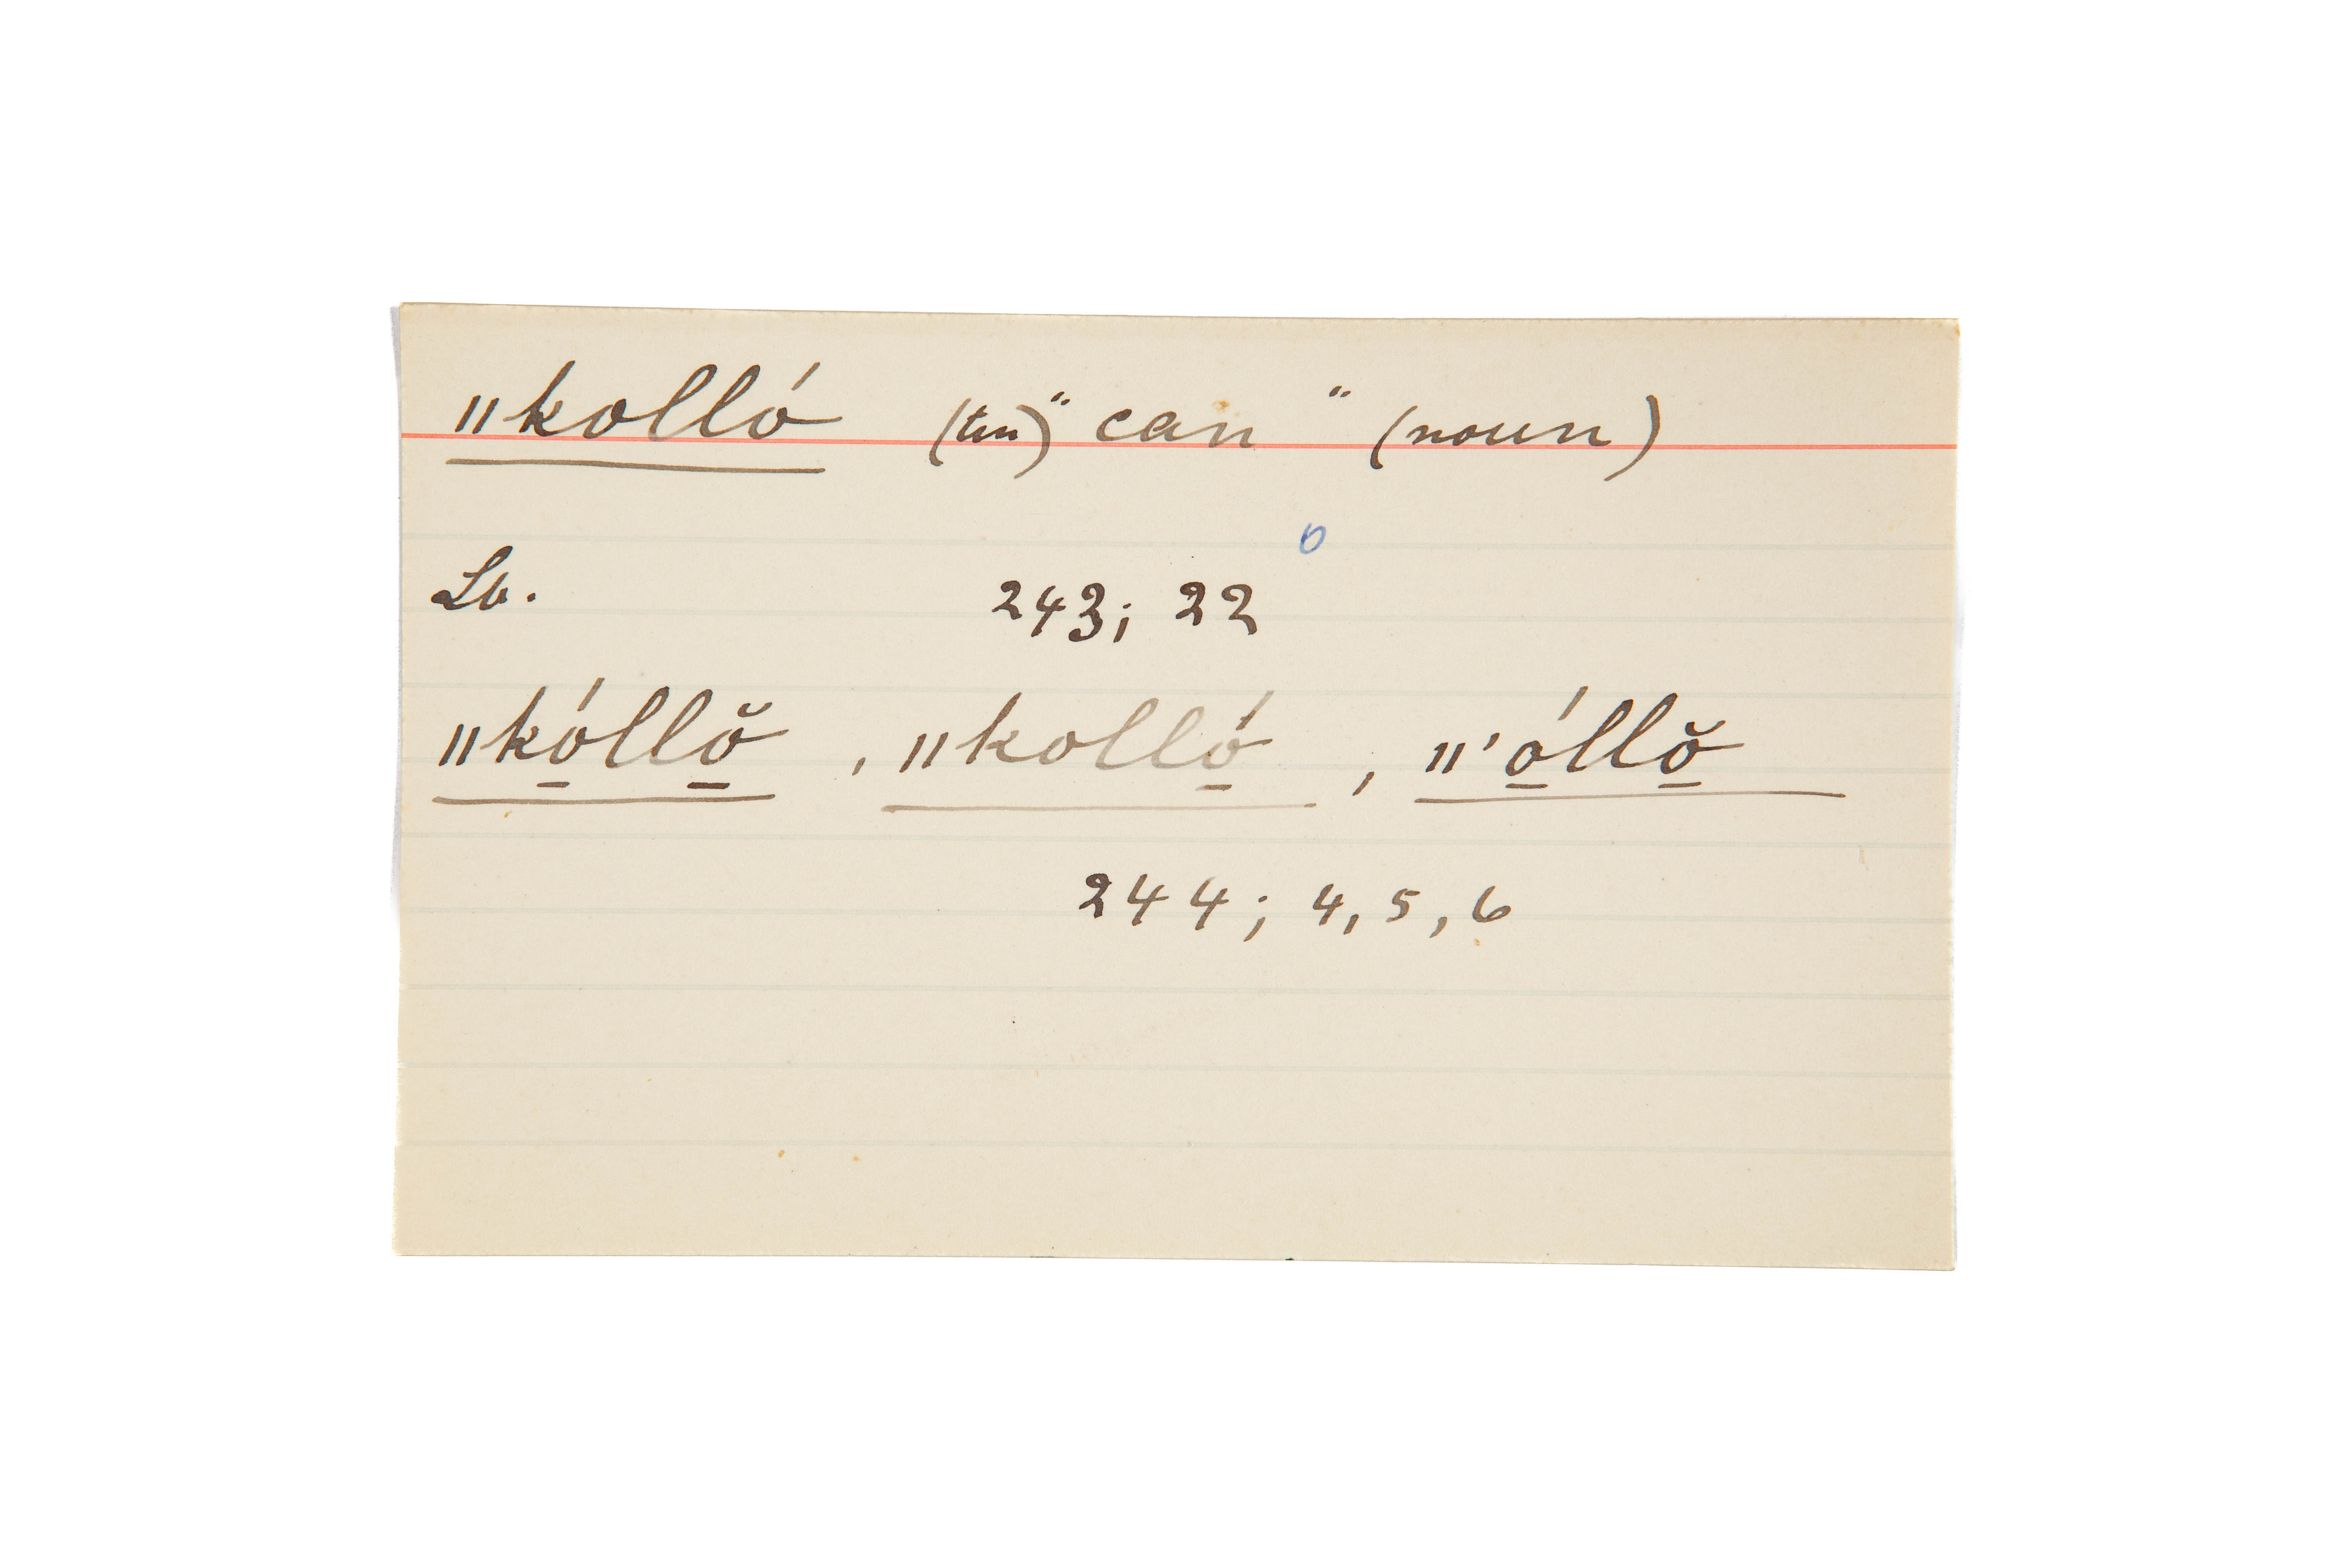 ǁkolló (tin) "can" (noun)
o
Lb. 243; 22
ǁkó̱llŏ̱, ǁkolló̱, ǁ'ó̱llŏ̱
244; 4, 5, 6